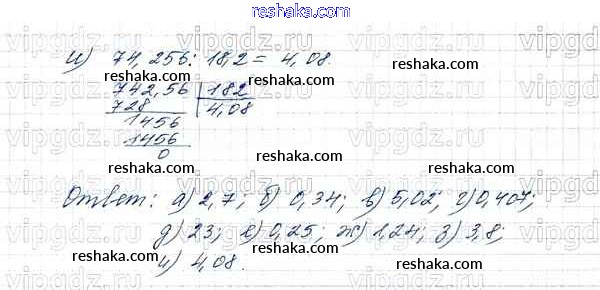 reshaka.com
и) 74,256 : 18,2 = 4,08.
reshaka.com reshaka.com
742,56 | 182
728 4,08
reshaka.com
1456
1456
0
reshaka.com reshaka.com
Ответ: а) 2,7; б) 0,34; в) 5,02; г) 0,407;
reshaka.com
д) 23; е) 0,25; ж) 1,24; з) 3,8;
reshaka.com reshaka.com
и) 4,08.
reshaka.com